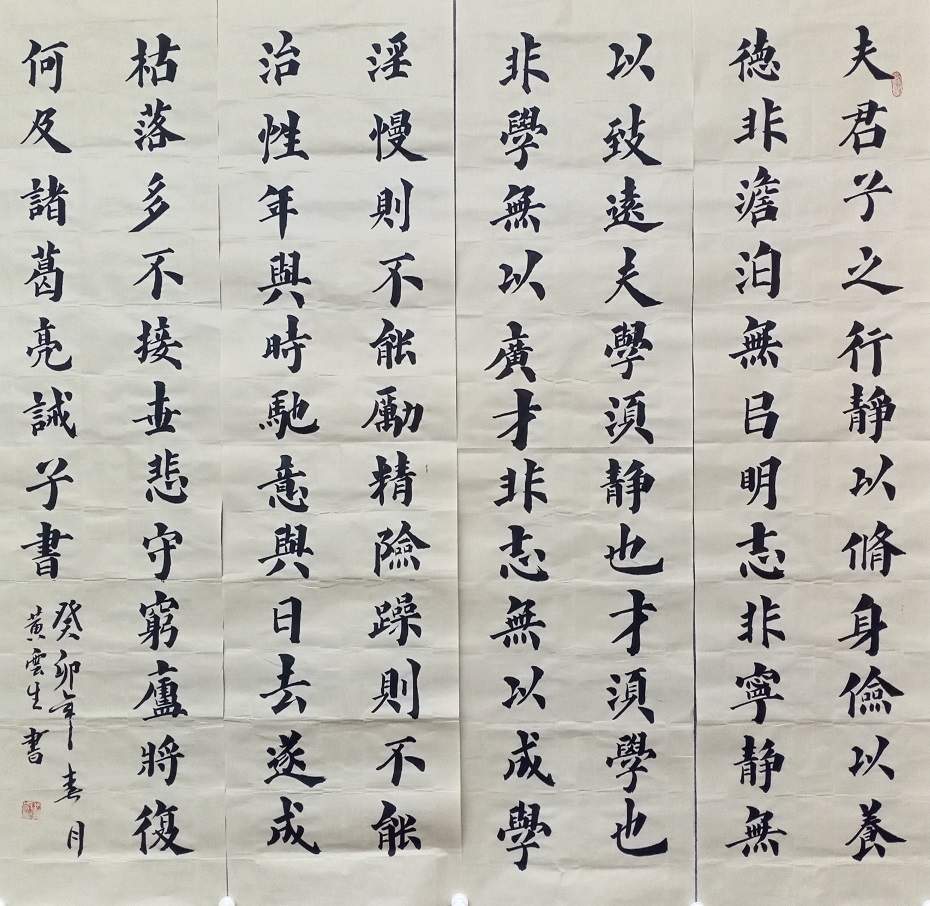 夫君子之行靜以脩身儉以養
德非澹泊無㠯明志非寧静無
以致遠夫學湏静也才湏學也
非學無以廣才非志無以成學
淫慢則不能勵精險躁則不能
治性年與時馳意與日去遂成
枯落多不接世悲守窮廬將復
何及諸葛亮誡子書
癸卯年春月
黃雲生書